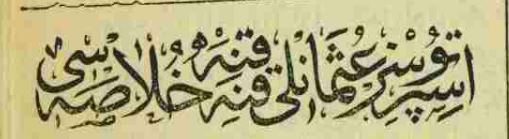 اسپرتوسز عثمانلی قنه قنه خُلاصه سی